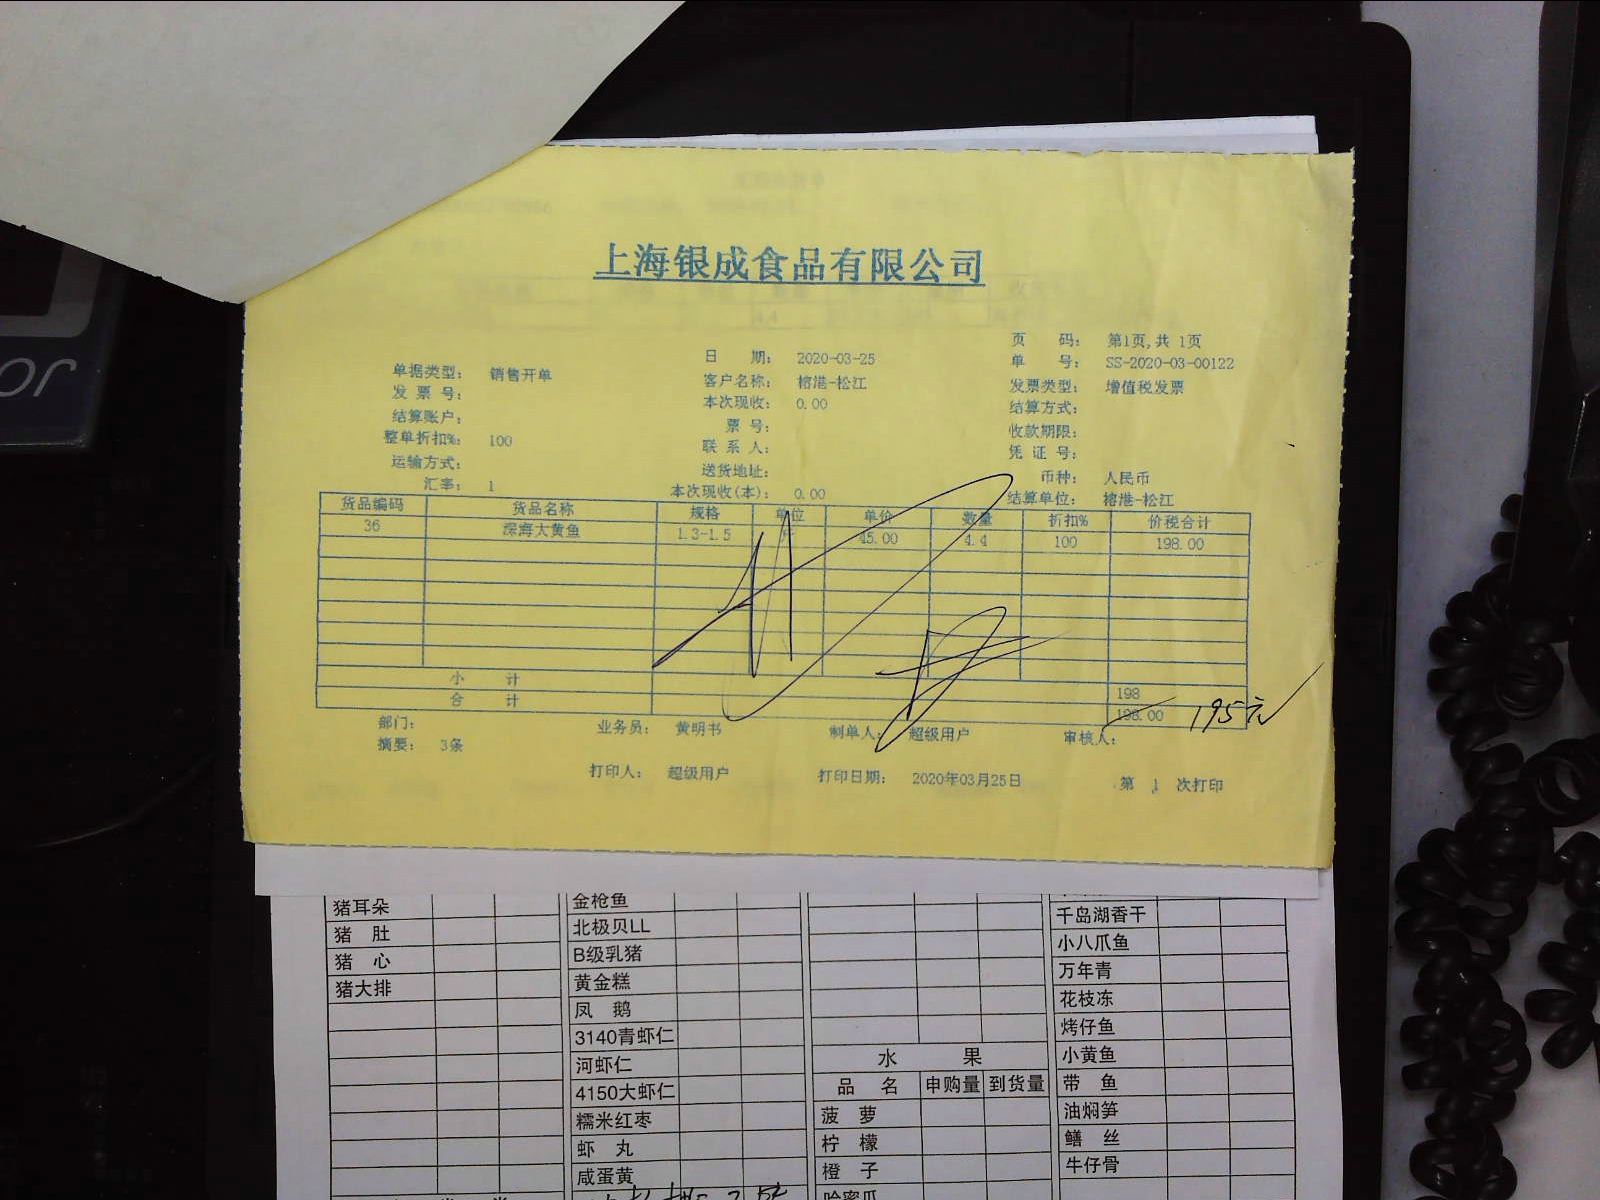 上海银成食品有限公司
页 码: 第1页,共 1页
日 期: 2020-03-25 单 号: SS-2020-03-00122
单据类型: 销售开单 客户名称: 榕港-松江 发票类型: 增值税发票
发 票 号: 本次现收: 0.00 结算方式:
结算账户: 票 号: 收款期限:
整单折扣%: 100 联 系 人: 凭 证 号:
运输方式: 送货地址: 币种: 人民币
汇率: 1 本次现收(本): 0.00 结算单位: 榕港-松江
货品编码 货品名称 规格 单位 单价 数量 折扣% 价税合计
36 深海大黄鱼 1.3-1.5 45.00 4.4 100 198.00
小 计 198
合 计 198.00 195元
部门: 业务员: 黄明书 制单人: 超级用户 审核人:
摘要: 3条
打印人: 超级用户 打印日期: 2020年03月25日 第 1 次打印
猪耳朵 金枪鱼 千岛湖香干
猪 肚 北极贝LL 小八爪鱼
猪 心 B级乳猪 万年青
猪大排 黄金糕 花枝冻
凤 鹅 烤仔鱼
3140青虾仁 水 果 小黄鱼
河虾仁 品 名 申购量 到货量 带 鱼
4150大虾仁 菠 萝 油焖笋
糯米红枣 柠 檬 鳝 丝
虾 丸 橙 子 牛仔骨
咸蛋黄 哈蜜瓜